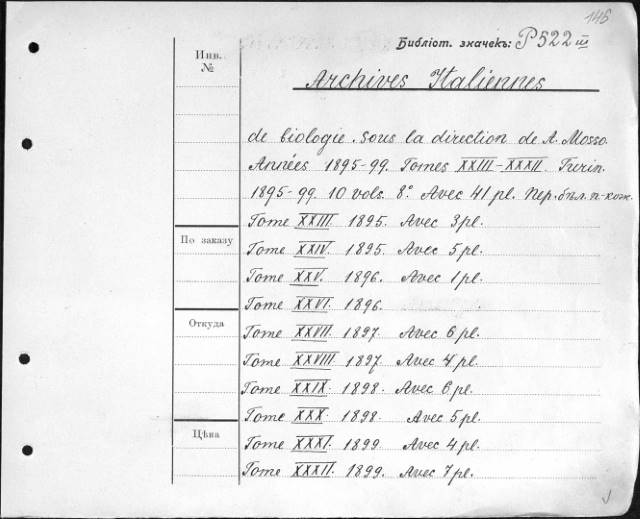 146
Библіот. значекъ: P 522 III
Инв. №
Archives Italiennes
de biologie. Sous la direction de A. Mosso.
Années 1895-99. Tomes XXIII-XXXII. Turin.
1895-99. 10 vols. 8°. Avec 41 pl. Пер. бѣл. п-кож.
Tome XXIII. 1895. Avec 3 pl.
По заказу
Tome XXIV. 1895. Avec 5 pl.
Tome XXV. 1896. Avec 1 pl.
Tome XXVI. 1896.
Откуда
Tome XXVII. 1897. Avec 6 pl.
Tome XXVIII. 1897. Avec 4 pl.
Tome XXIX. 1898. Avec 6 pl.
Tome XXX. 1898. Avec 5 pl.
Цѣна
Tome XXXI. 1899. Avec 4 pl.
Tome XXXII. 1899. Avec 7 pl.